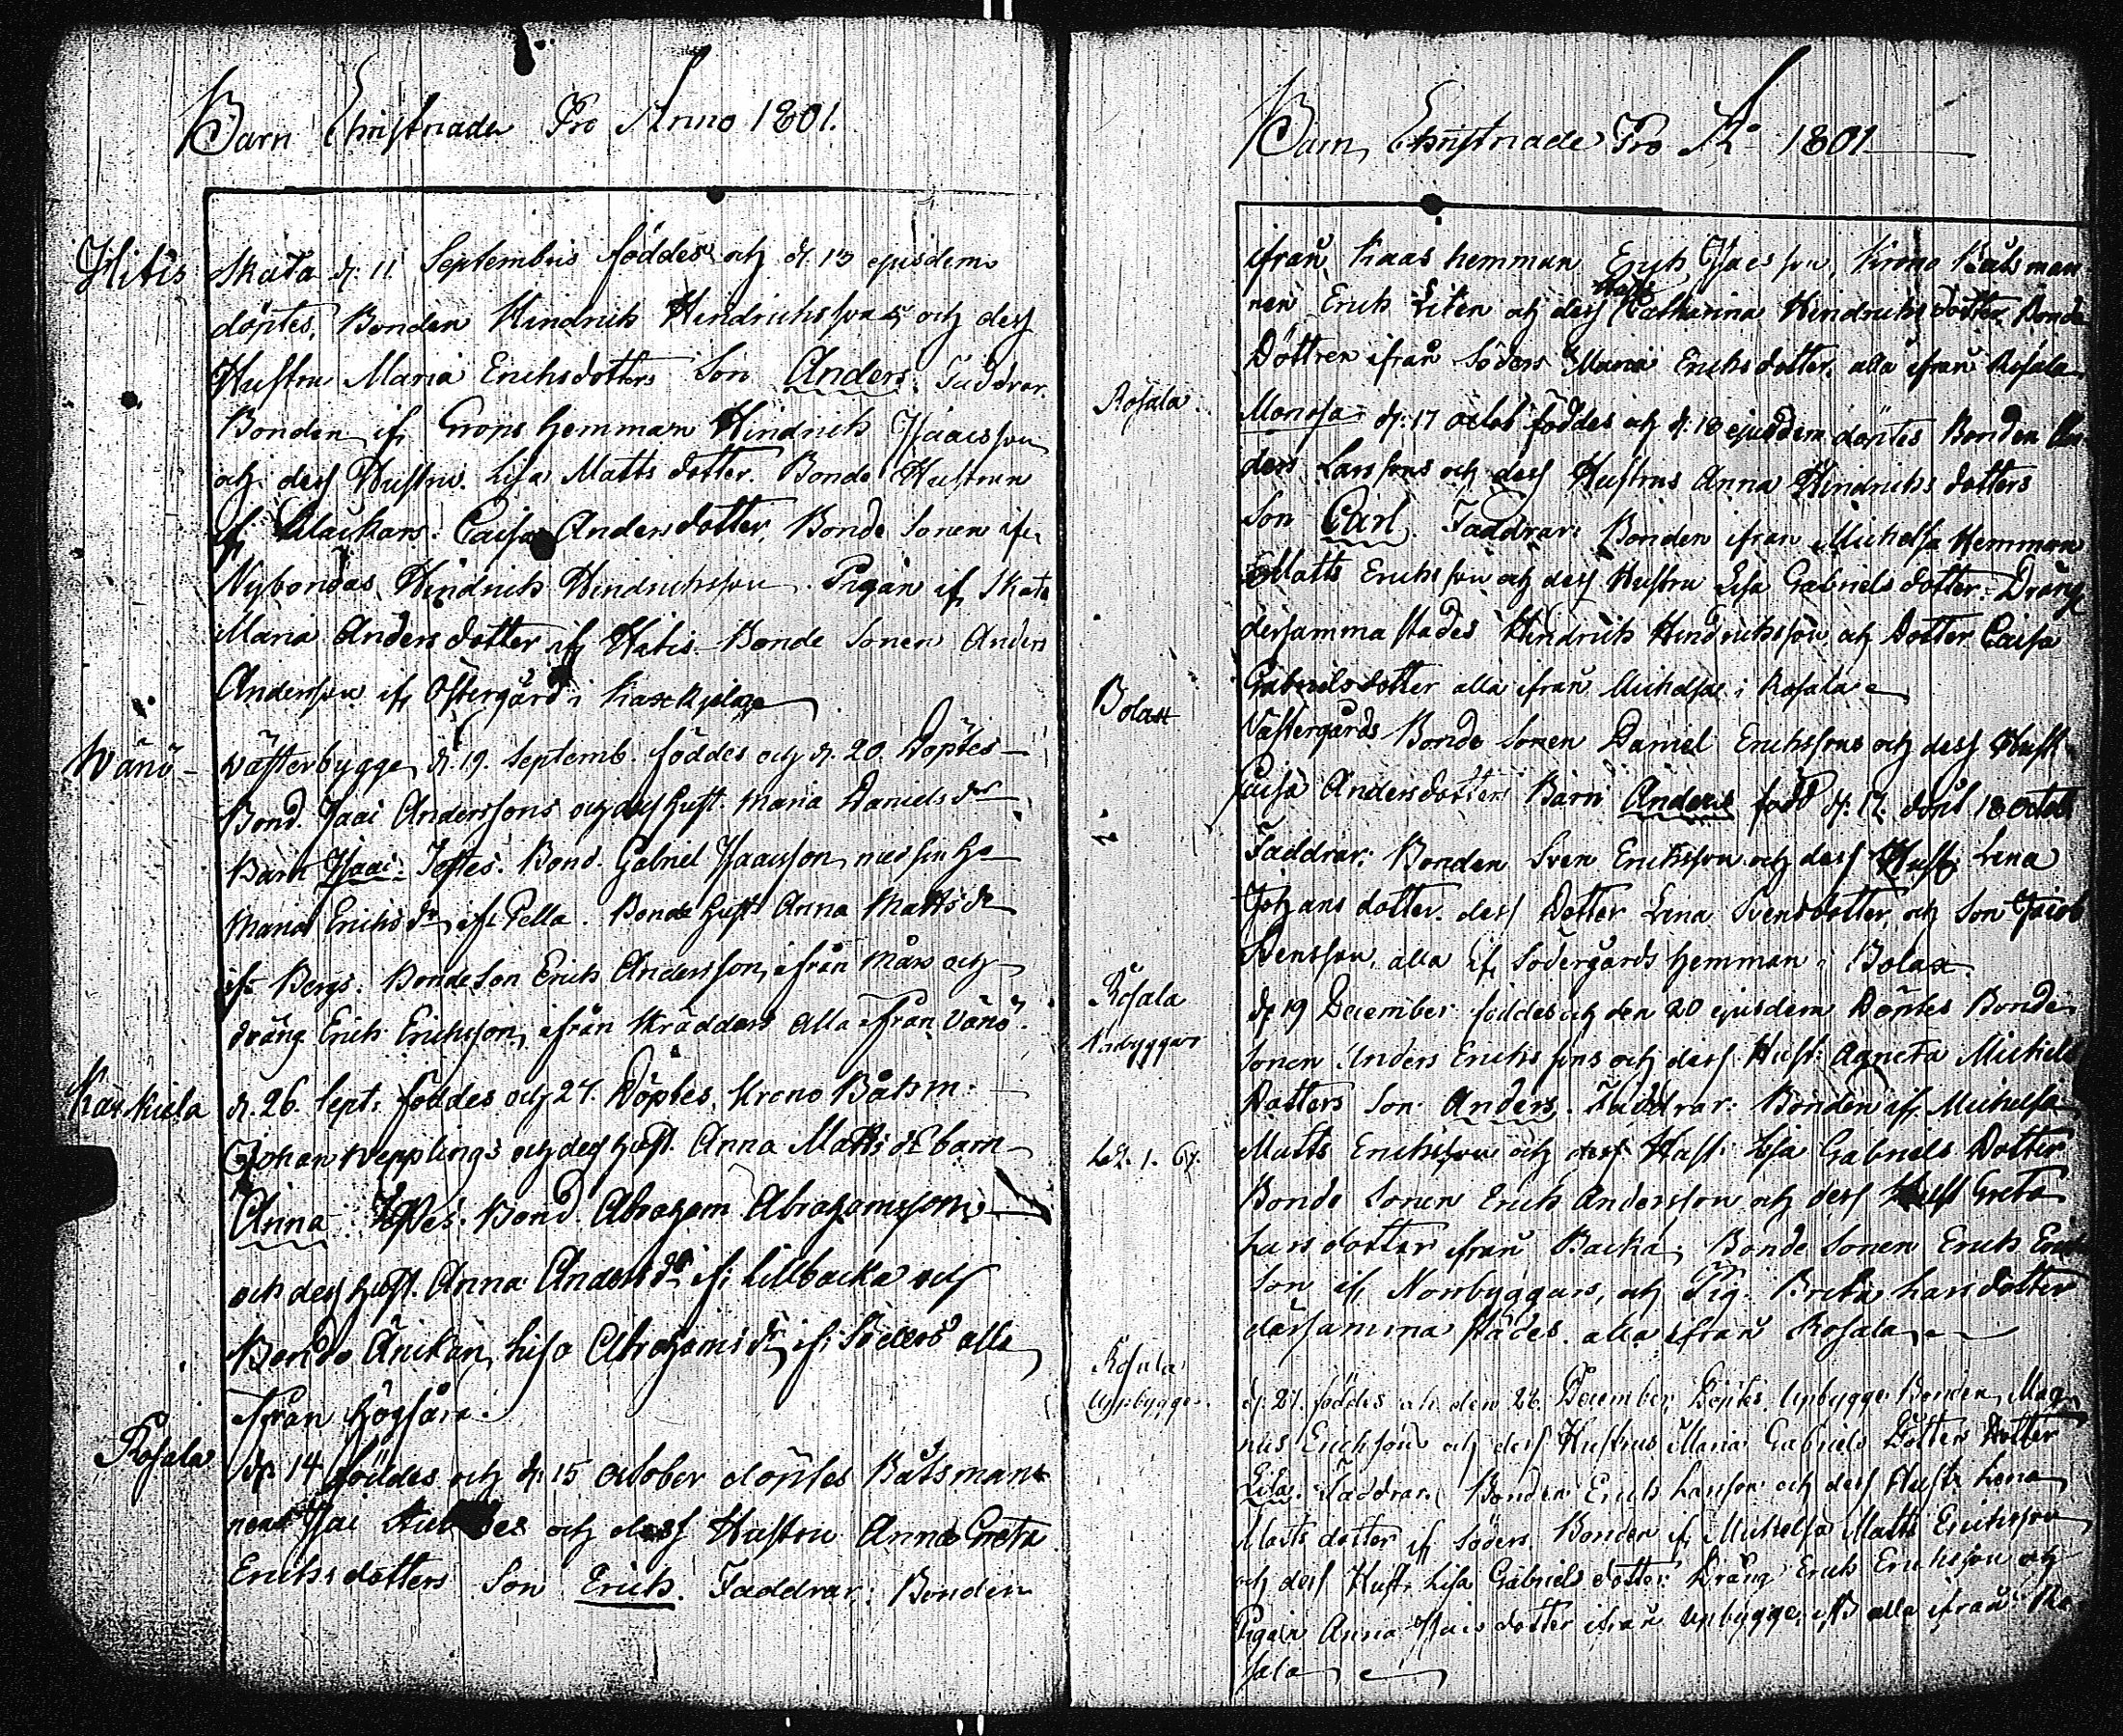 Barn Christnade Pro Anno 1801.
Hitis Skata d. 11 Septembris föddes och d. 13 ejusdem
döptes, Bonden Hindrich Hindrichssons och dess
Hustru Maria Erichsdotters Son Anders. Faddrar.
Bonden if. Grops hemman Hindrich Isaacsson
och dess Hustru Lisa Matts dotter. Bonde Hustrun
if. Caisa Andersdotter, Bonde Sonen if.
Nybondas Hindrich Hindrichsson. Pigan if. Skata
Maria Anders dotter if. Hitis. Bonde Sonen Anders
Andersson if. Östergård i
Wänö - wästerbygge, d. 19. Septemb. föddes och d. 20. Döptes -
Bond. Isaac Anderssons och dess hust. Maria Daniels dr
Barn Isaac. Testes. Bond. Gabriel Isaacsson med sin h.
Maria Erichs dr if. Pella. Bonde hust. Anna Matts dr
if. Bergs. Bonde Son Erich Andersson, ifrån Mårs och
dräng Erich Erichsson, ifrån Skrädders Alla ifrån Vänö.
d. 26. Sept. föddes och 27. Döptes, Krono Båtsm.
Johan Wepplings och dess hust. Anna Matts dr barn
Anna. Testes. Bond. Abraham Abrahamsson
och dess hust. Anna Anders dr if. Lillbacka och
Bonde Änckan, Lisa Abrahams dr, if. Söders alla
ifrån Högsåra.
Rosala d. 14 föddes och d. 15 October döptes Båtsman-
nens Isac och dess Hustru Anna Greta
Erichsdotters Son Erich. Faddrar: Bonden
Barn Christnade Pro Ao 1801
ifrån Kaas hemman Erich Isacsson, Krono Båtsman
nen Erich Liten och dess Hust. Catharina Hindrichs dotter, Bonde
Döttren ifrån Söders Maria Erichsdotter, alla ifrån Rosala.
Rosala. d. 17 octob föddes och d. 18 ejusdem döptes Bonden An-
ders Larssons och dess Hustrus Anna Hindrichs dotters
Son Carl. Faddrar: Bonden ifrån Michelsa Hemman
Matts Erichsson och dess Hustru Lisa Gabriels dotter. Dräng
dersamma städes Hindrich Hindrichsson, och Dotter Caisa
Gabrielsdotter alla ifrån Michelsa i Rosala
Bolax Västergårds Bonde Sonen Daniel Erichssons och dess Hust.
Caisa Andersdotters Barn Anders född d. 17. döpt 18 octob
Faddrar: Bonden Sven Erichsson och dess Hust. Lena
Johans dotter. dess Dotter Lena Svensdotter, och Son Jacob
Svensson, alla if. Södergårds hemman i Bolax.
Rosala d. 19 December föddes och den 20 ejusdem Döptes Bonde
Norrbyggars Sonen Anders Erichssons och dess Hust. Agneta Michels
Dotters Son Anders. Faddrar: Bonden if. Michelsa
Matts Erichsson och dess Hust. Lisa Gabriels Dotter
Bonde Sonen Erich Andersson och dess Hust Greta
Lars dotter ifrån Backa, Bonde Sonen Erich
Son if. Norrbyggars, och Pig. Brita Lars dotter
därsamma städes. alla ifrån Rosala.
Rosala
Uppbygge. föddes och den 28. December, Döptes Upbygge Bonden, Mag-
nus Erichsons och dess Hustrus Maria Gabriels Dotter Dotter
Lisa. Faddrar. Bonden Erich Larsson och dess Hust. Lena
Matts dotter if. Söders. Bonden if. Michelsa Matts Erichsson
och dess Hust. Lisa Gabriels dotter. Dräng Erich Erichsson och
Pigan Anna Isacs dotter ifrån Upbygge, alla ifrån Ro-
sala